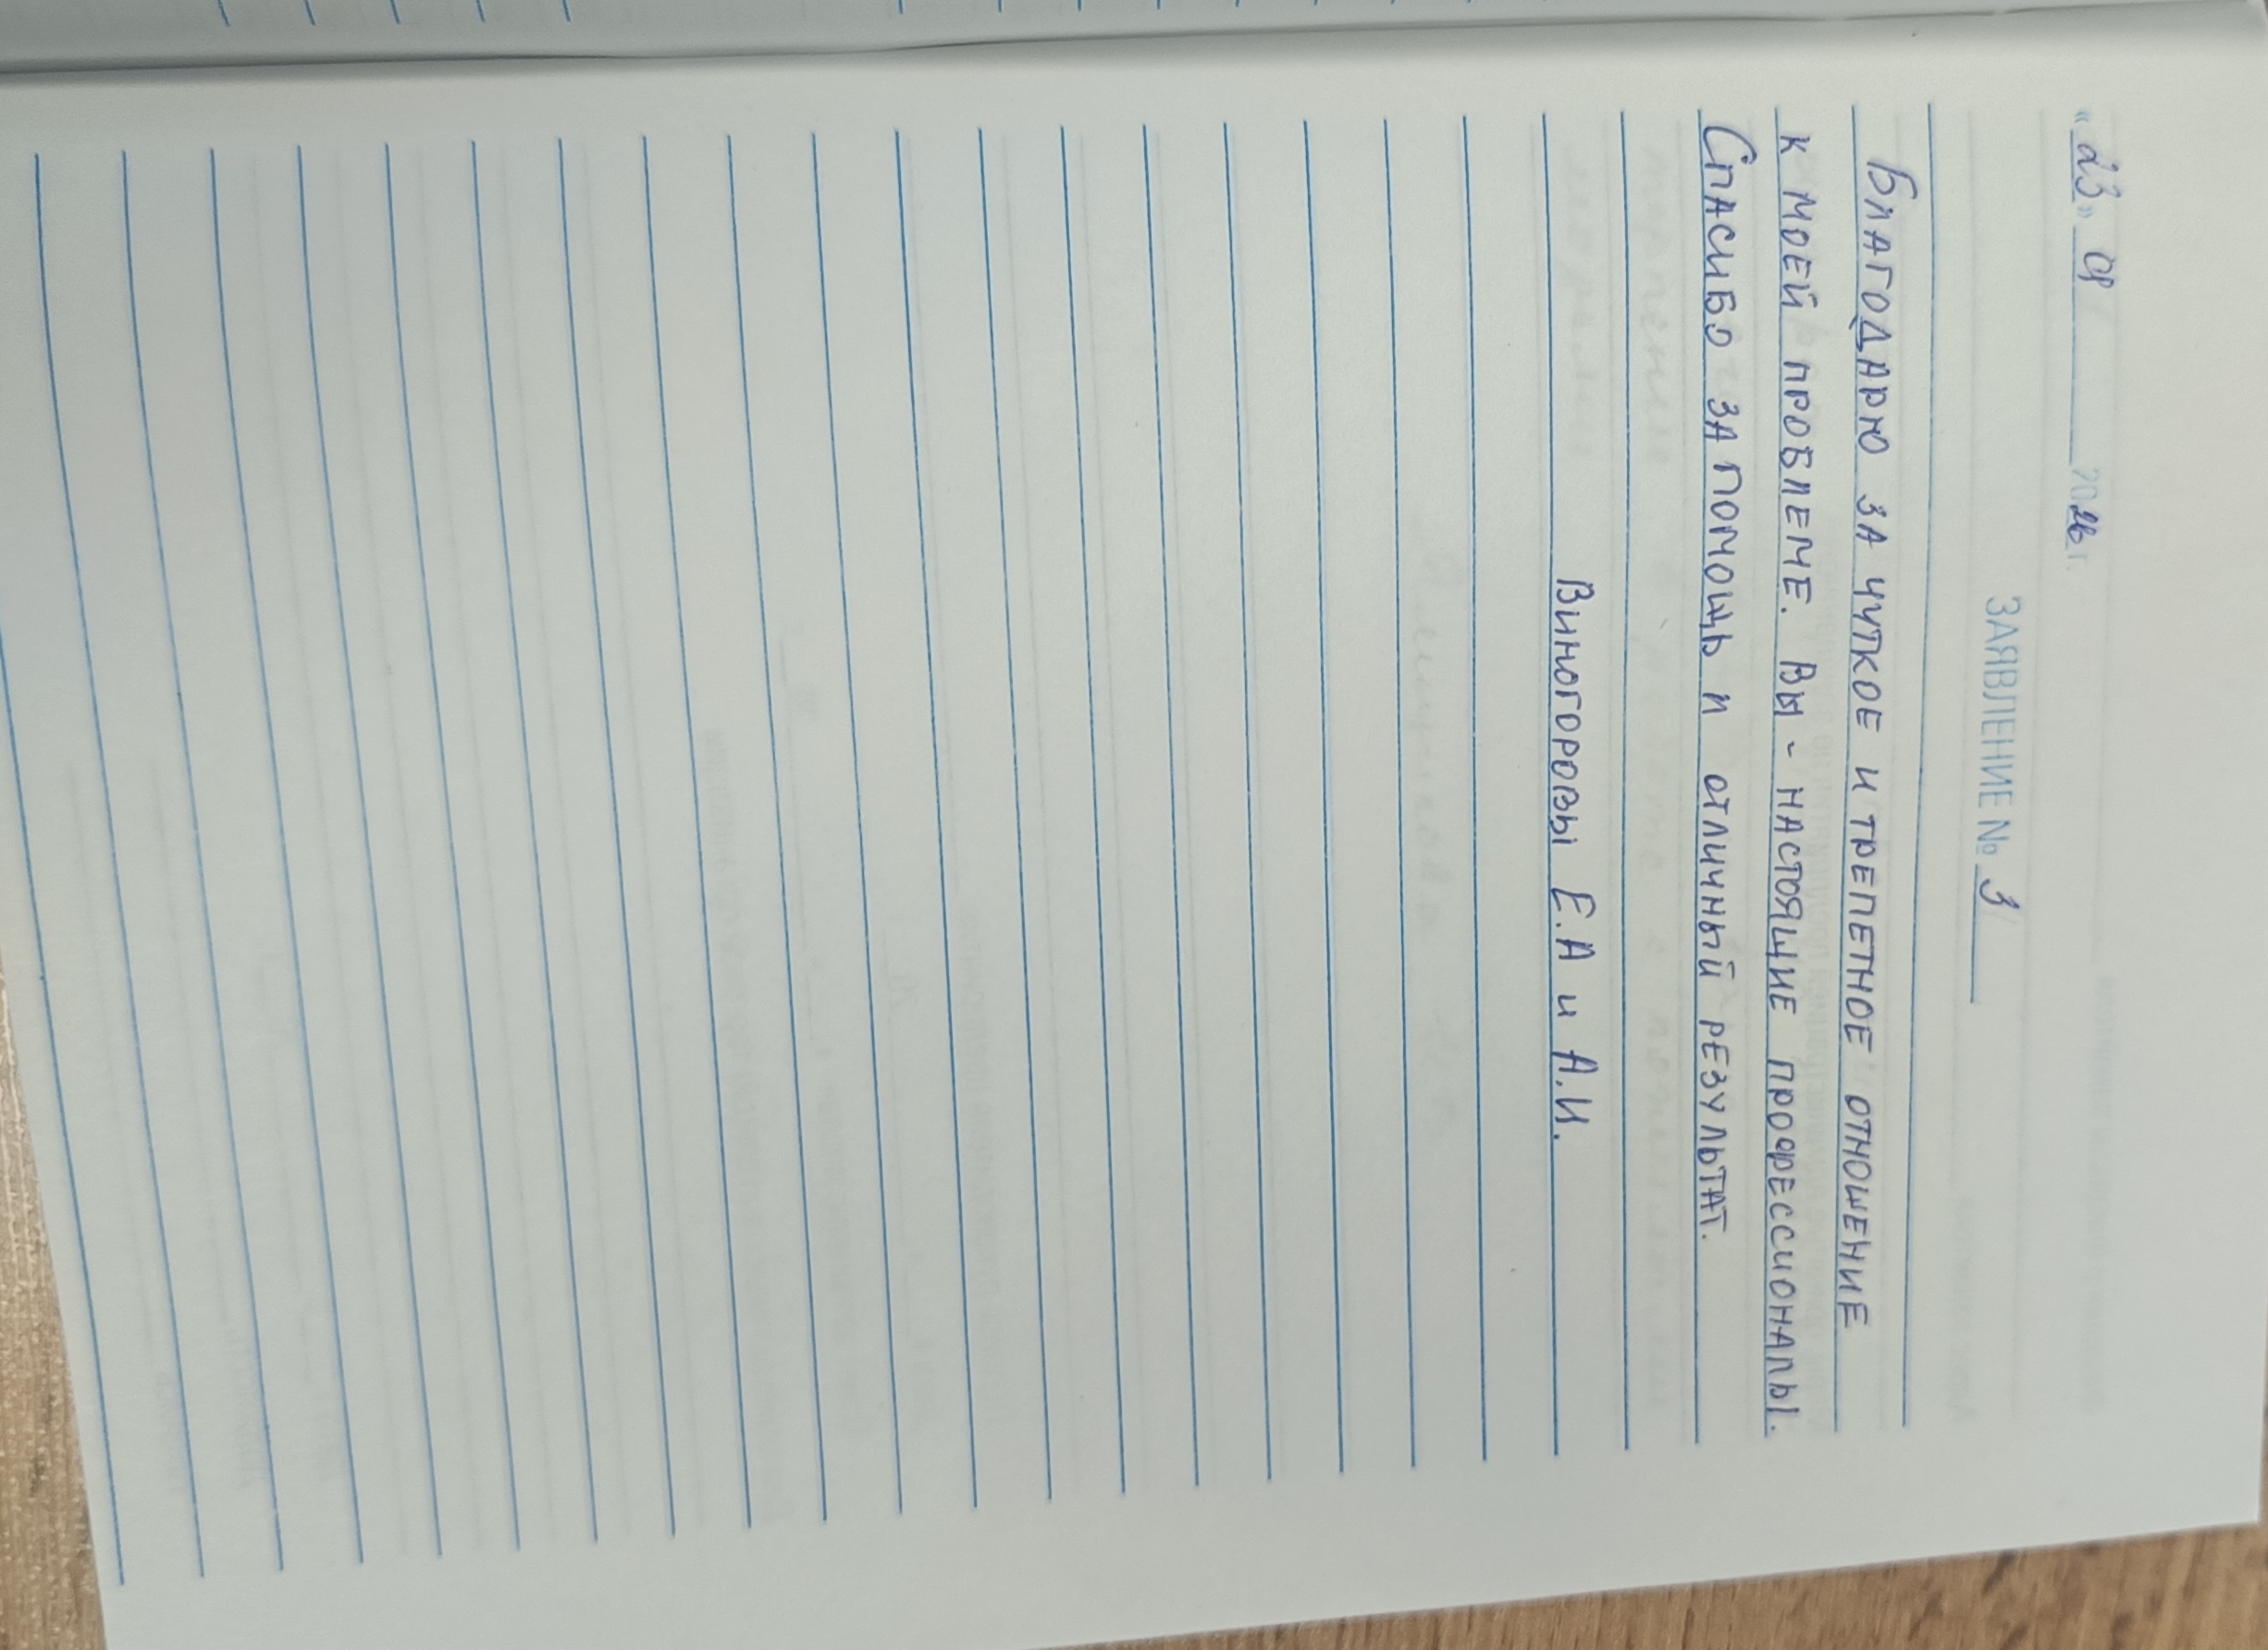 «23» 01 2026 г.
ЗАЯВЛЕНИЕ № 3
Благодарю за чуткое и трепетное отношение
к моей проблеме. Вы - настоящие профессионалы.
Спасибо за помощь и отличный результат.
Виногоровы Е.А и А.И.